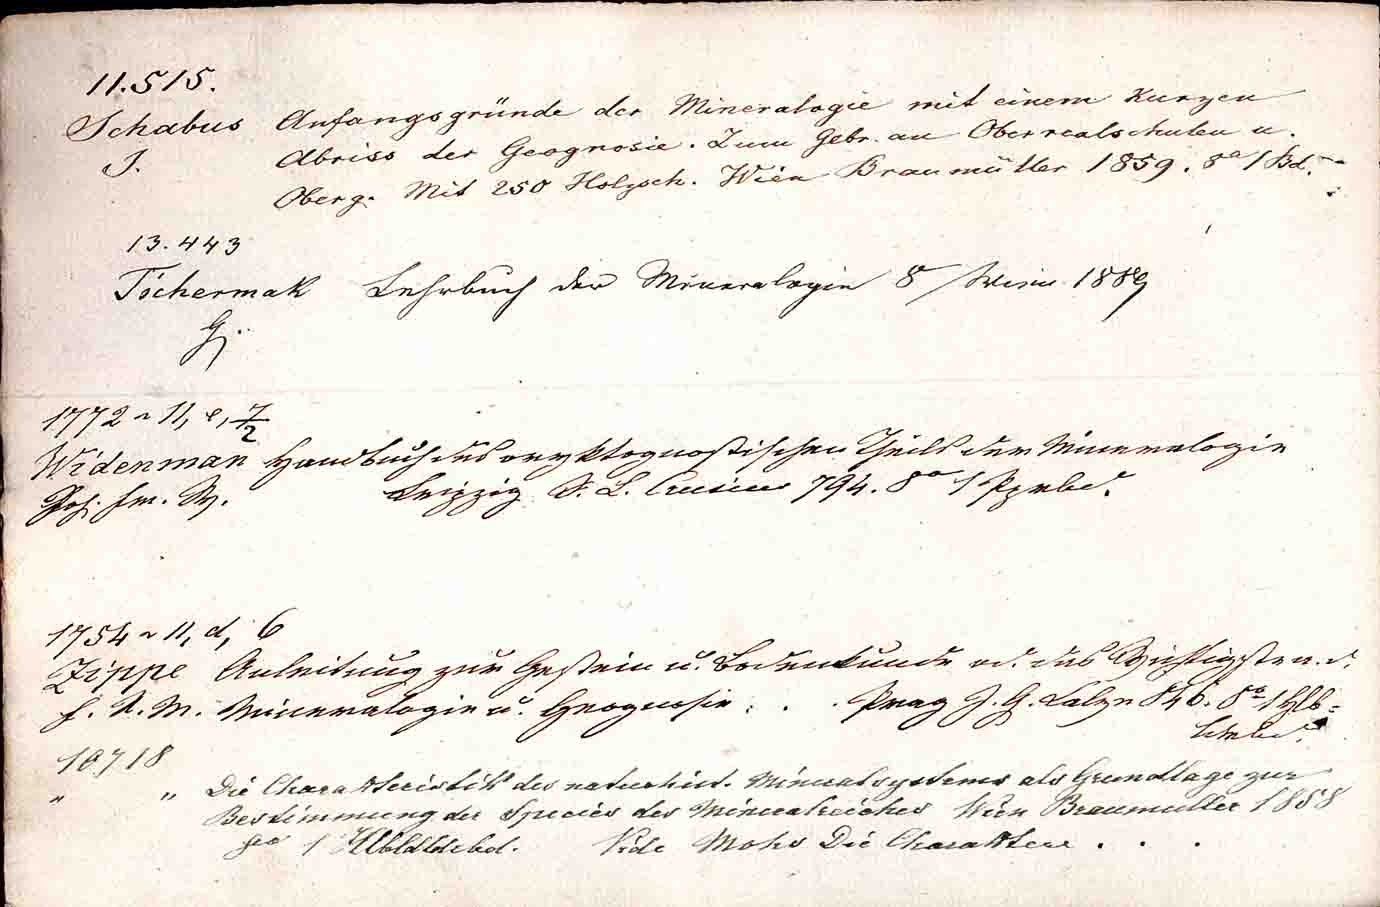 11.515.
Schabus Anfangsgründe der Mineralogie mit einem kurzen
J. Abriss der Geognosie. Zum Gebr. an Oberrealschulen u.
Oberg. Mit 250 Holzsch. Wien Braumüller 1859. 8° 1 Bd.
13.443
Tschermak Lehrbuch der Mineralogie 8° Wien 1889
G.
1772 ~ 11, e, 7/2
Widenman Handbuch des oryktognostischen Theils der Mineralogie
Joh. Fr. W. Leipzig S. L. Crusius 794. 8° 1 Pprbd.
1754 ~ 11, d, 6
Zippe Anleitung zur Gestein u. Bodenkunde od. das Wichtigste a. d.
F. X. M. Mineralogie u. Geognosie . . . Prag J. G. Calve 846. 8° 1 Hlb=
10718
" " Die Charakteristik des naturhist. Mineralsystems als Grundlage zur
Bestimmung der Species des Mineralreiches Wien Braumüller 1858
8vo 1 Hlbldrbd. Vide Mohs Die Charaktere . . .